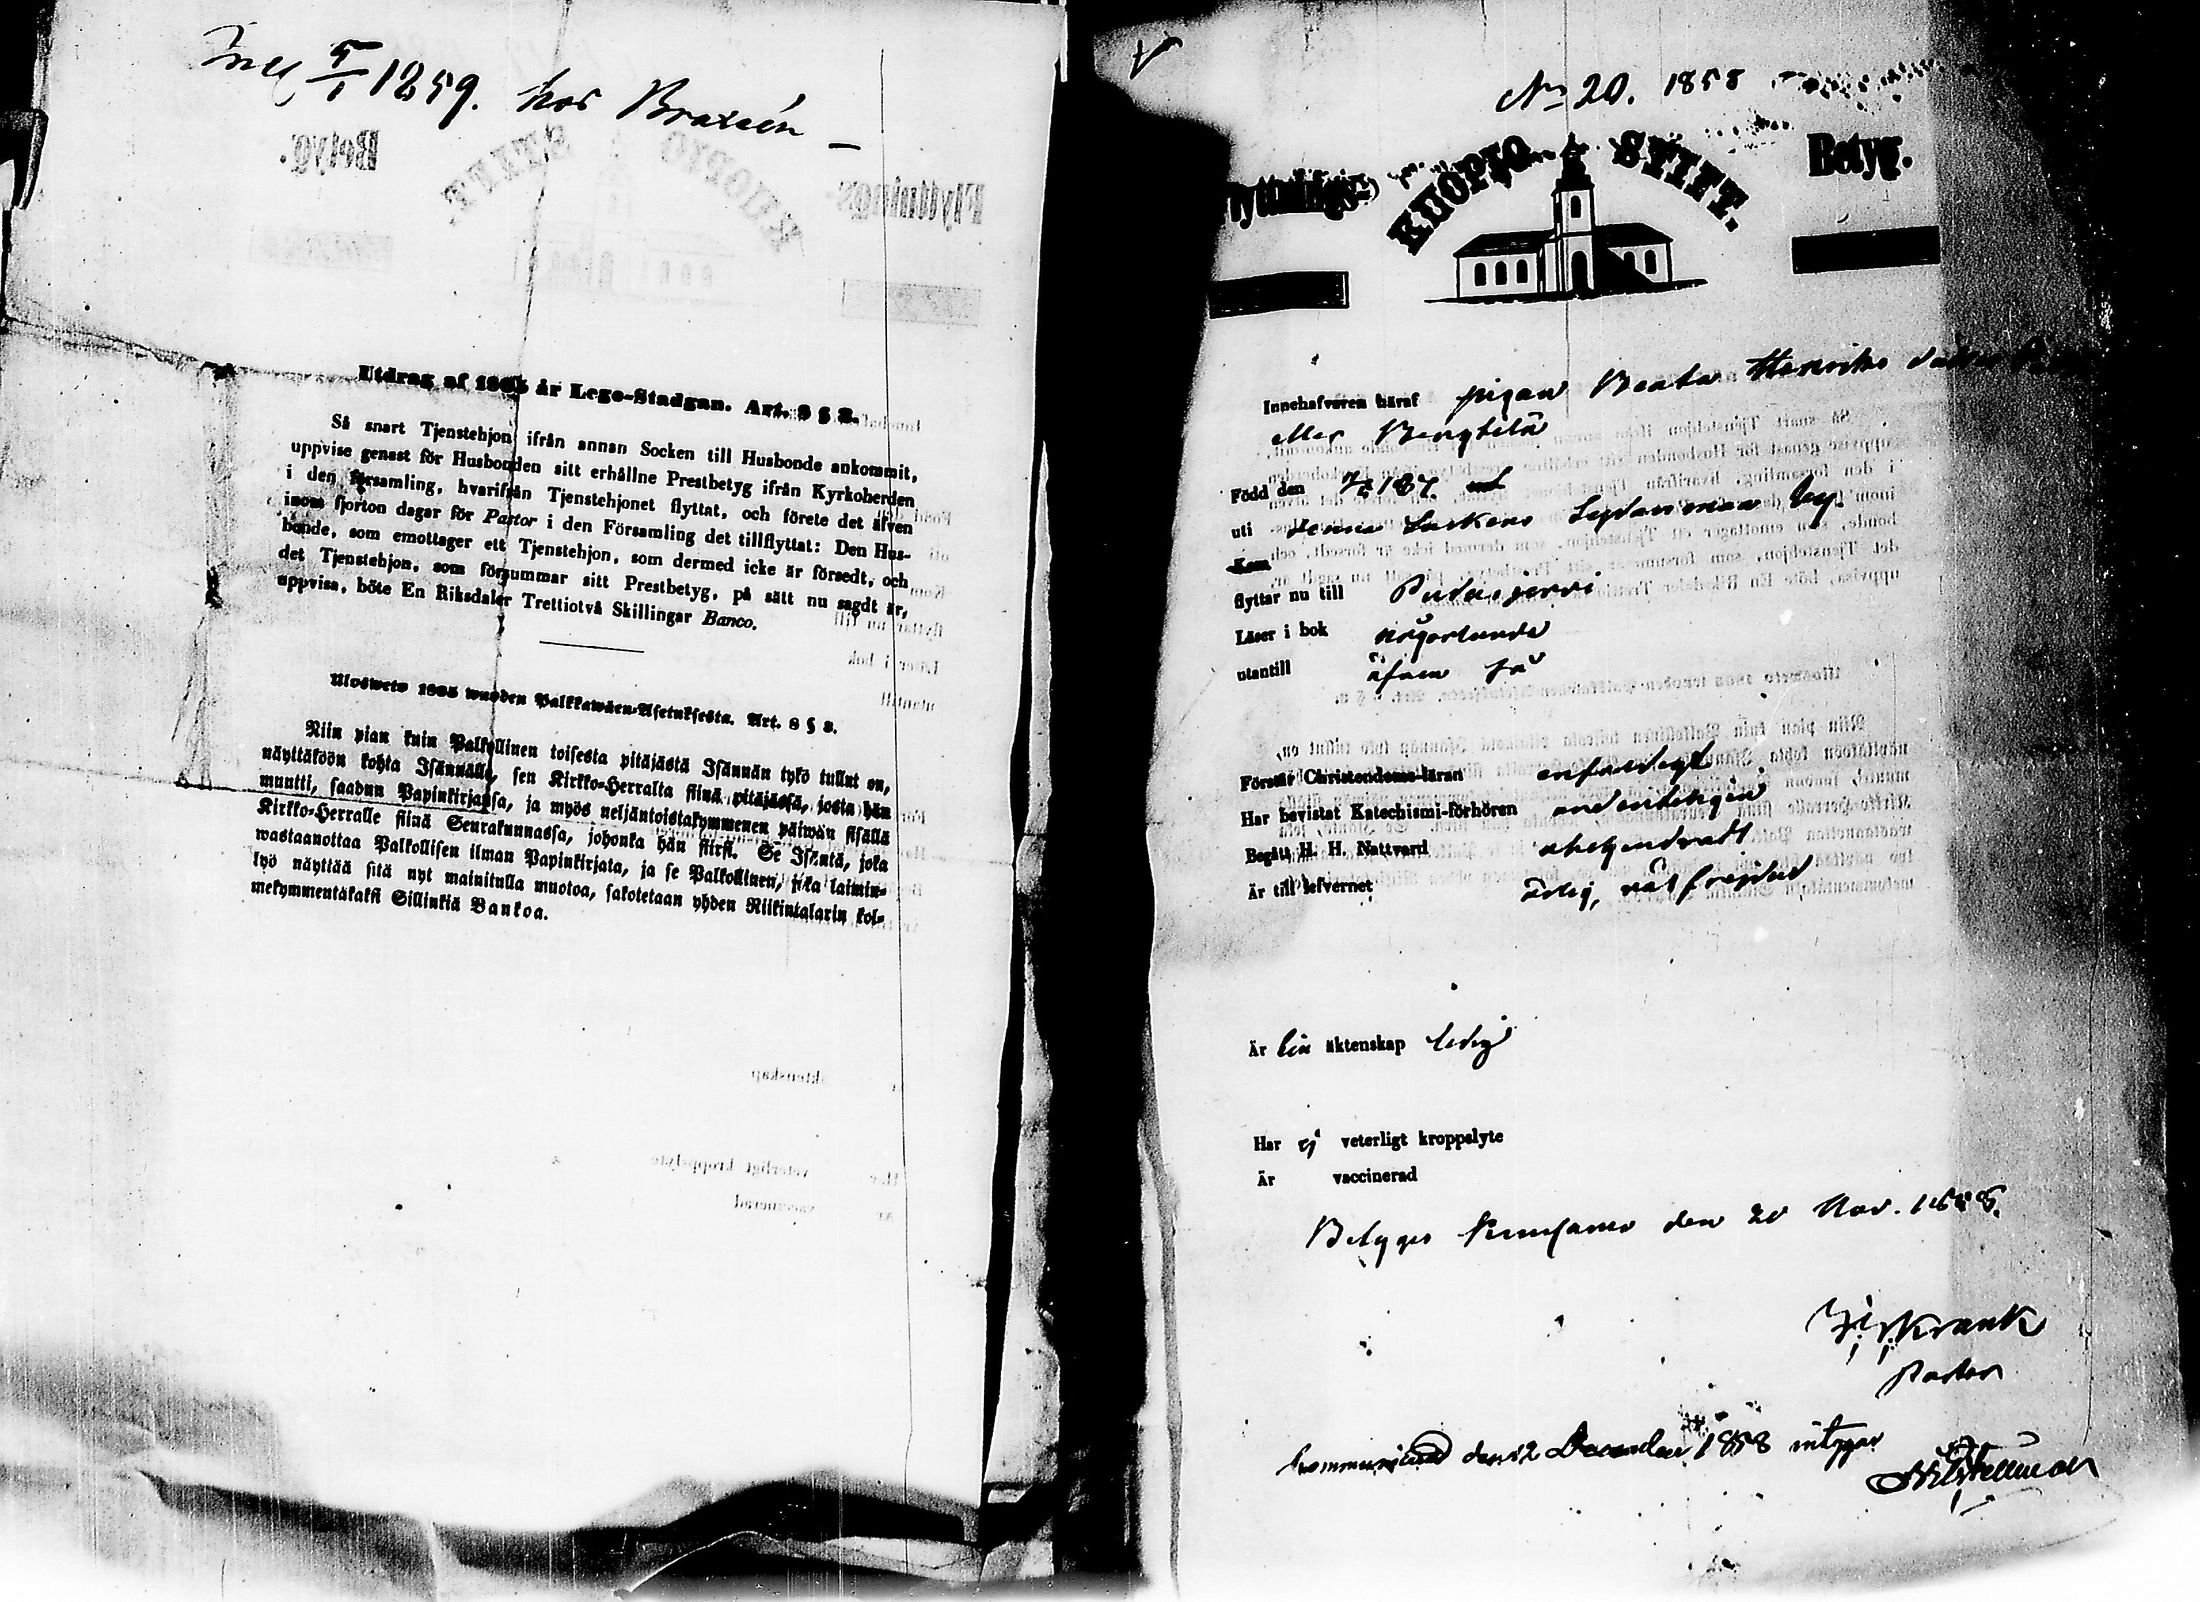 5/1 1859. hos Braxén
Utdrag af 1805 år Lego-Stadgan. Art. 8 § 2.
Så snart Tjenstehjon ifrån annan Socken till Husbonde ankommit,
uppvise genast för Husbonden sitt erhållne Prestbetyg ifrån Kyrkoherden
i den församling, hvarifrån Tjenstehjonet flyttat, och förete det äfven
inom fjorton dagar för Pastor i den Församling det tillflyttat: Den Hus-
bonde, som emottager ett Tjenstehjon, som dermed icke är försedt, och
det Tjenstehjon, som försummar sitt Prestbetyg, på sätt nu sagdt är,
uppvisa, böte En Riksdaler Trettiotvå Skillingar Banco.
Ulosweto 1805 wuoden Palkkawäen-Asetuksesta. Art. 8 § 2.
Niin pian kuin Palkollinen toisesta pitäjästä Isännän tykö tullut on,
näyttäköön kohta Isännälle, sen Kirkko-Herralta siinä pitäjässä, josta hän
muutti, saadun Papinkirjansa, ja myös neljäntoistakymmenen päiwän sisällä
Kirkko-Herralle siinä Seurakunnassa, johonka hän siirsi. Se Isäntä, joka
wastaanottaa Palkollisen ilman Papinkirjata, ja se Palkollinen, joka laimin-
lyö näyttää sitä nyt mainitulla muotoa, sakotetaan yhden Riikintalarin kol-
mekymmentäkaksi Sillinkiä Bankoa.
No 20. 1858
Flyttnings KUOPIO STIFT. Betyg.
Innehafvaren häraf pigan Beata Henriks dotter
eller
Född den
uti Socken by.
Kom
flyttar nu till Pudasjervi
Läser i bok någorlunda
utantill äfven så
Förstår Christendoms-läran enfaldigt
Har bevistat Katechismi-förhören ordenteligen
Begått H. H. Nattvard
Är till lefvernet ärlig, väl frejdad
Är till äktenskap ledig
Har ej veterligt kroppslyte
Är vaccinerad
Betygas Kuusamo den 20 Nov. 1858.
Pastor
kommunicerad den 12 December 1858 intygar